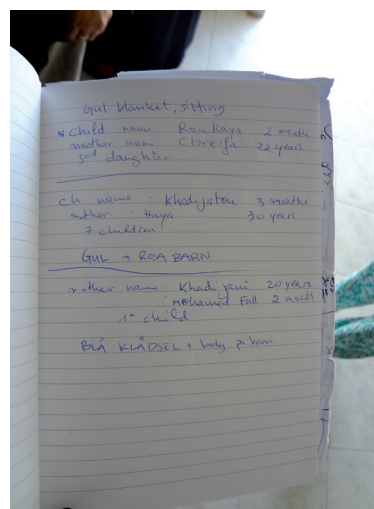 Gul blanket, sitting
* child name Roukaya 2 month
mother nam Chreifa 22 years
3rd daughter
ch name : Khadijatou 3 months
mother : Haya 30 years
7 children
GUL + ROSA BARN
mother name : Khadijeni 20 years
: Mohamed Fall 2 month
1st child
BLÅ KLÄDSEL + body på barn